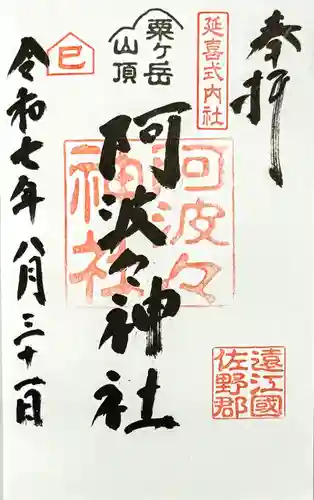 奉拝
延喜式内社
粟ヶ岳
山頂
巳
阿波々神社
阿波々
神社
遠江國
佐野郡
令和七年八月三十一日